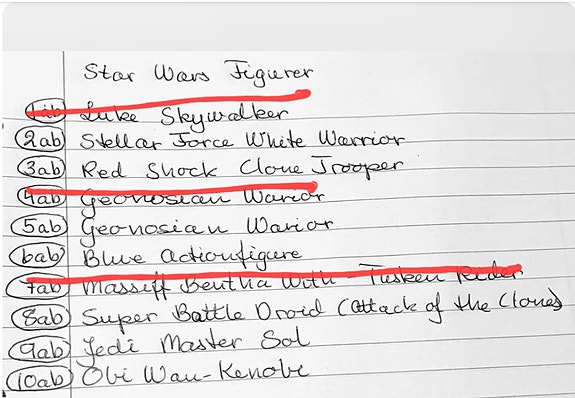 Star Wars Figurer
1ab Luke Skywalker
2ab Stellar Force White Warrior
3ab Red Shock Clone Trooper
4ab Geonosian Warior
5ab Geonosian Warior
6ab Blue Actionfigure
7ab Massiff Bentha With - Tusken Rider
8ab Super Battle Droid (Attack of the Clones)
9ab Jedi Master Sol
10ab Obi Wan-Kenobi